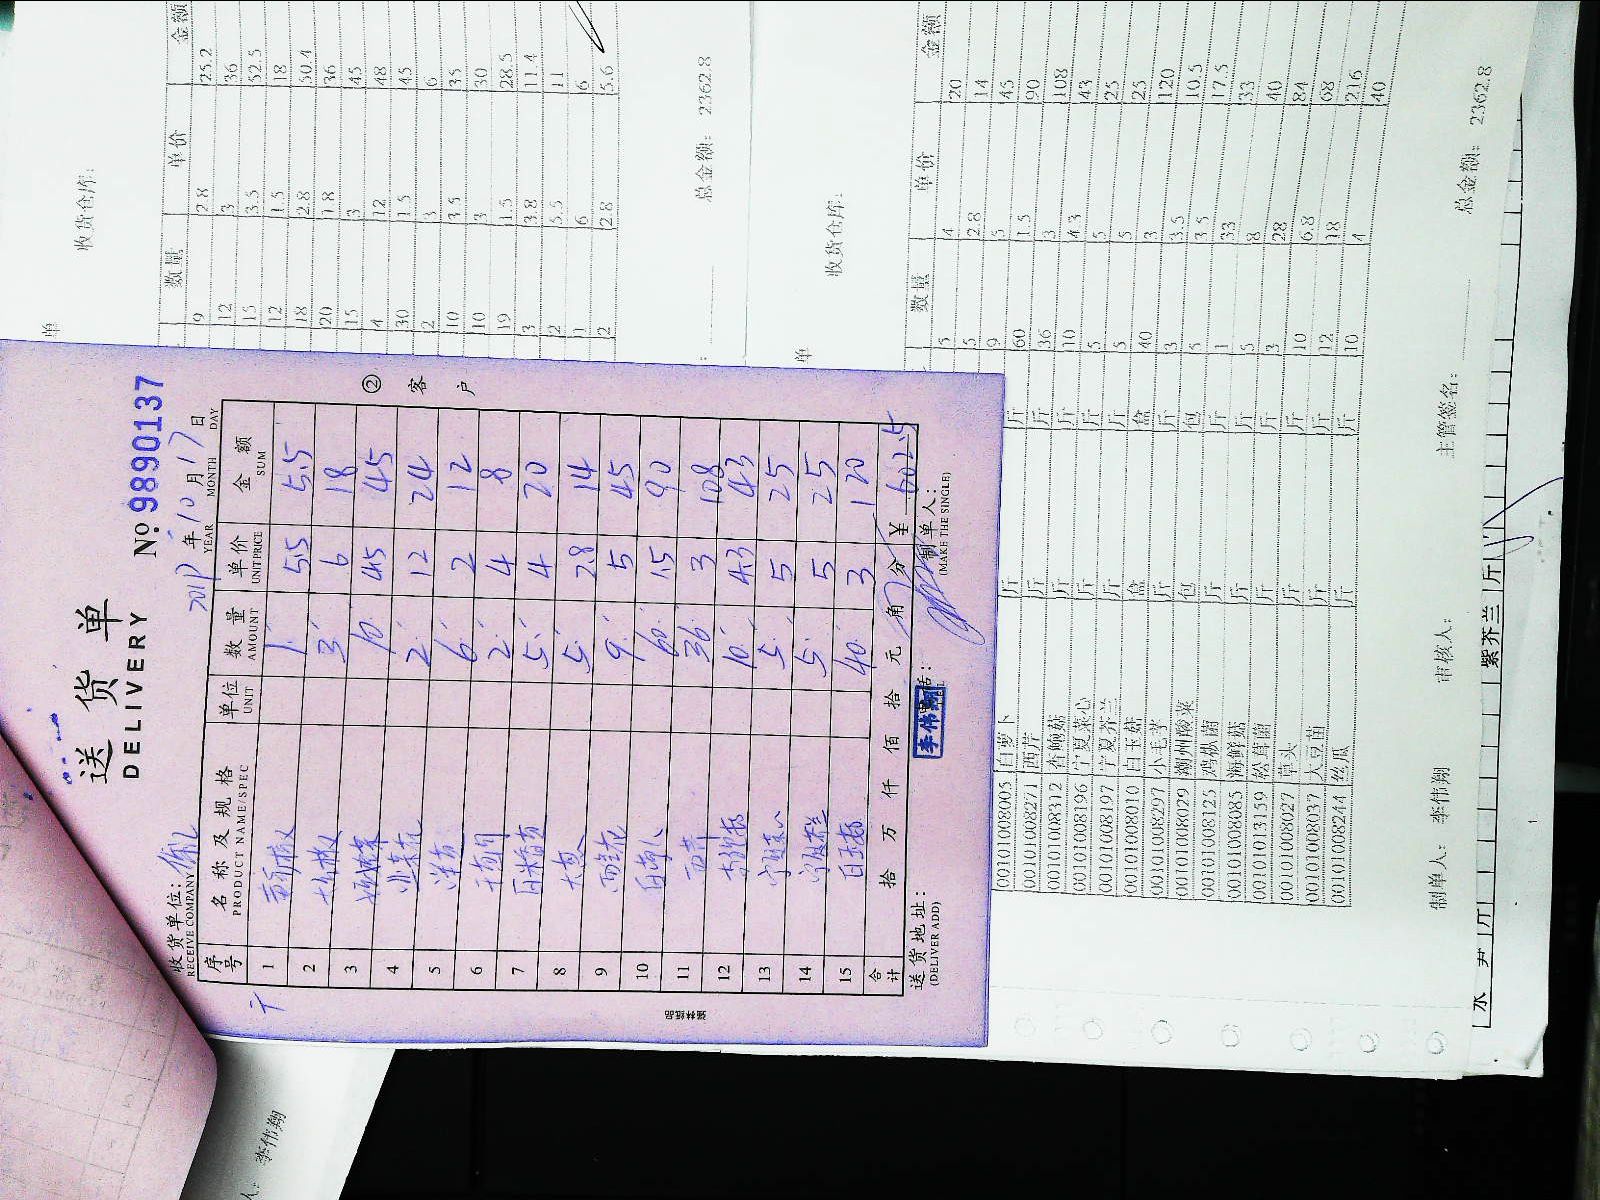 送货单
DELIVERY
No. 9890137
收货单位:
RECEIVE COMPANY
年 10 月 17 日
YEAR MONTH DAY
序号 名称及规格 单位 数量 单价 金额
PRODUCT NAME/SPEC UNIT AMOUNT UNIT PRICE SUM
1 1 5.5 5.5
2 3 6 18
3 10 4.5 45
4 2 12 24
5 洋葱 6 2 12
6 2 4 8
7 5 4 20
8 大葱 5 2.8 14
9 西兰花 9 5 45
10 白萝卜 60 1.5 90
11 西芹 36 3 108
12 10 4.3 43
13 宁夏菜心 5 5 25
14 宁夏芥兰 5 5 25
15 白玉菇 40 3 120
合计 拾 万 仟 佰 拾 元 角 分 ¥ 602.5
送货地址:
(DELIVER ADD)
制单人:
(MAKE THE SINGLE)
李伟翔
② 客户
单
收货仓库:
数量 单价 金额
9 2.8 25.2
12 3 36
15 3.5 52.5
12 1.5 18
18 2.8 50.4
20 1.8 36
15 3 45
4 12 48
30 1.5 45
2 3 6
10 3.5 35
10 3 30
19 1.5 28.5
3 3.8 11.4
2 5.5 11
1 6 6
2 2.8 5.6
总金额: 2362.8
单
收货仓库:
数量 单价 金额
5 4 20
5 2.8 14
9 5 45
00101008005 白萝卜 斤 60 1.5 90
00101008271 西芹 斤 36 3 108
00101008312 杏鲍菇 斤 10 4.3 43
00101008196 宁夏菜心 斤 5 5 25
00101008197 宁夏芥兰 斤 5 5 25
00101008010 白玉菇 盒 40 3 120
00101008297 小毛芋 斤 3 3.5 10.5
00101008029 潮州酸菜 包 5 3.5 17.5
00101008125 斤 1 33 33
00101008085 海鲜菇 斤 5 8 40
00101013159 松茸菌 斤 3 28 84
00101008027 草头 斤 10 6.8 68
00101008037 大豆苗 斤 12 18 216
00101008244 丝瓜 斤 10 4 40
总金额: 2362.8
制单人: 李伟翔 审核人: 主管签名:
紫芥兰 斤
李伟翔